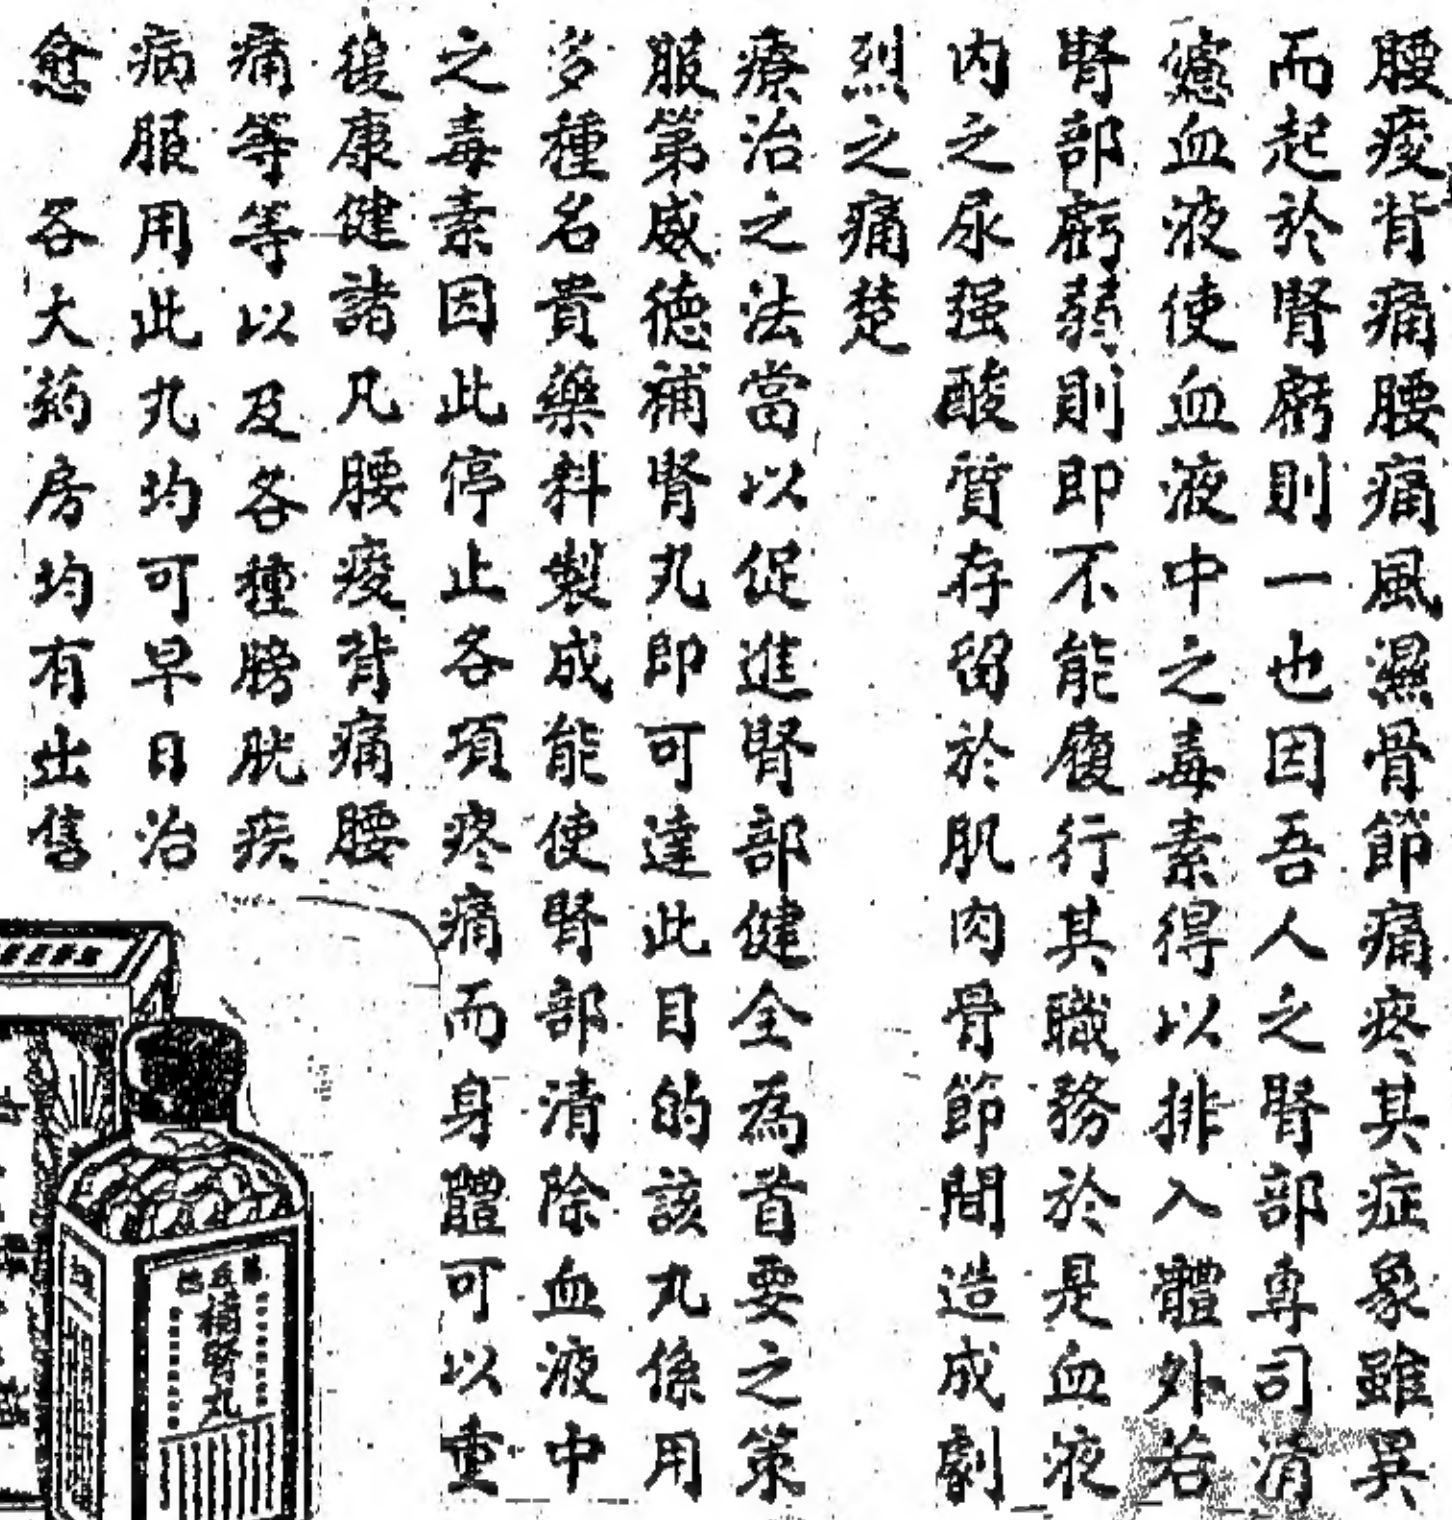 腰痠背痛腰痛風濕骨節痛疼其症象雖異
而起於腎虧則一也因吾人之腎部專司清
濾血液使血液中之毒素得以排入體外若
腎部虧弱則即不能履行其職務於是血液
內之尿强酸質存留於肌肉骨節間造成劇
烈之痛楚
療治之法當以促進腎部健全為首要之策
服第威德補腎丸即可達此目的該丸係用
多種名貴藥料製成能使腎部清除血液中
之毒素因此停止各項疼痛而身體可以重
復康健諸凡腰痠背痛腰
痛等等以及各種膀胱疾
病服用此丸均可早日治
愈　各大葯房均有出售
補腎丸